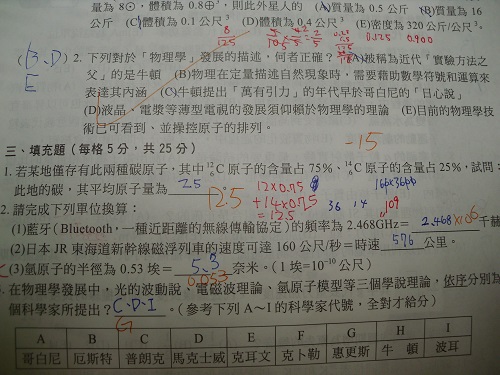 量為 8⊙，體積為 0.8⊕³，則此外星人的 (A)質量為 0.5 公斤 (B)質量為 16
公斤 (C)體積為 0.1 公尺³ (D)體積為 0.4 公尺³ (E)密度為 320 公斤/公尺³。
8/125 0.125 0.900
(B、D) E 2. 下列對於「物理學」發展的描述，何者正確？ (A)被稱為近代「實驗方法之
父」的是牛頓 (B)物理在定量描述自然現象時，需要藉助數學符號和運算來
表達其內涵 (C)牛頓提出「萬有引力」的年代早於哥白尼的「日心說」
(D)液晶、電漿等薄型電視的發展須仰賴於物理學的理論 (E)目前的物理學技
術已可看到、並操控原子的排列。
-15
三、填充題（每格 5 分，共 25 分）
1. 若某地僅存有此兩種碳原子，其中 ¹²₆C 原子的含量占 75%、¹⁴₆C 原子的含量占 25%，試問：
此地的碳，其平均原子量為 25 12.5
12×0.75
+14×0.25
=12.5
160×3600
36 14 109
2. 請完成下列單位換算：
(1)藍牙（Bluetooth，一種近距離的無線傳輸協定）的頻率為 2.468GHz= 2.468×10⁶ 千赫
(2)日本 JR 東海道新幹線磁浮列車的速度可達 160 公尺/秒＝時速 576 公里。
(3)氫原子的半徑為 0.53 埃＝ 5.3 奈米。（1 埃=10⁻¹⁰公尺）
0.053
在物理學發展中，光的波動說、電磁波理論、氫原子模型等三個學說理論，依序分別為
個科學家所提出？ C、D、I 。（參考下列 A～I 的科學家代號，全對才給分）
G
A B C D E F G H I
哥白尼 厄斯特 普朗克 馬克士威 克耳文 克卜勒 惠更斯 牛 頓 波耳